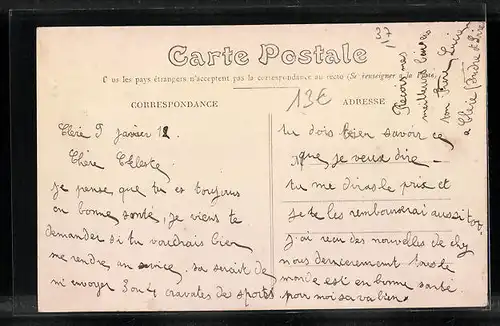 37
Carte Postale
Tous les pays étrangers n'acceptent pas la correspondance au recto (Se renseigner à la Poste)
13€
CORRESPONDANCE
ADRESSE
Cléré 9 janvier 12
Chère Céleste
je pense que tu es toujours
en bonne santé, je viens te
demander si tu voudrais bien
me rendre un service, sa serait de
m'envoyer 3 ou 4 cravates de sports
tu dois bien savoir ce
que je veux dire —
tu me diras le prix et
je te les rembourserai aussitôt.
j'ai reçu des nouvelles de chez
nous dernièrement tout le
monde est en bonne santé
pour moi sa va bien
Recois mes
meilleurs baisers
ton frère
a Cléré (Indre et Loire)